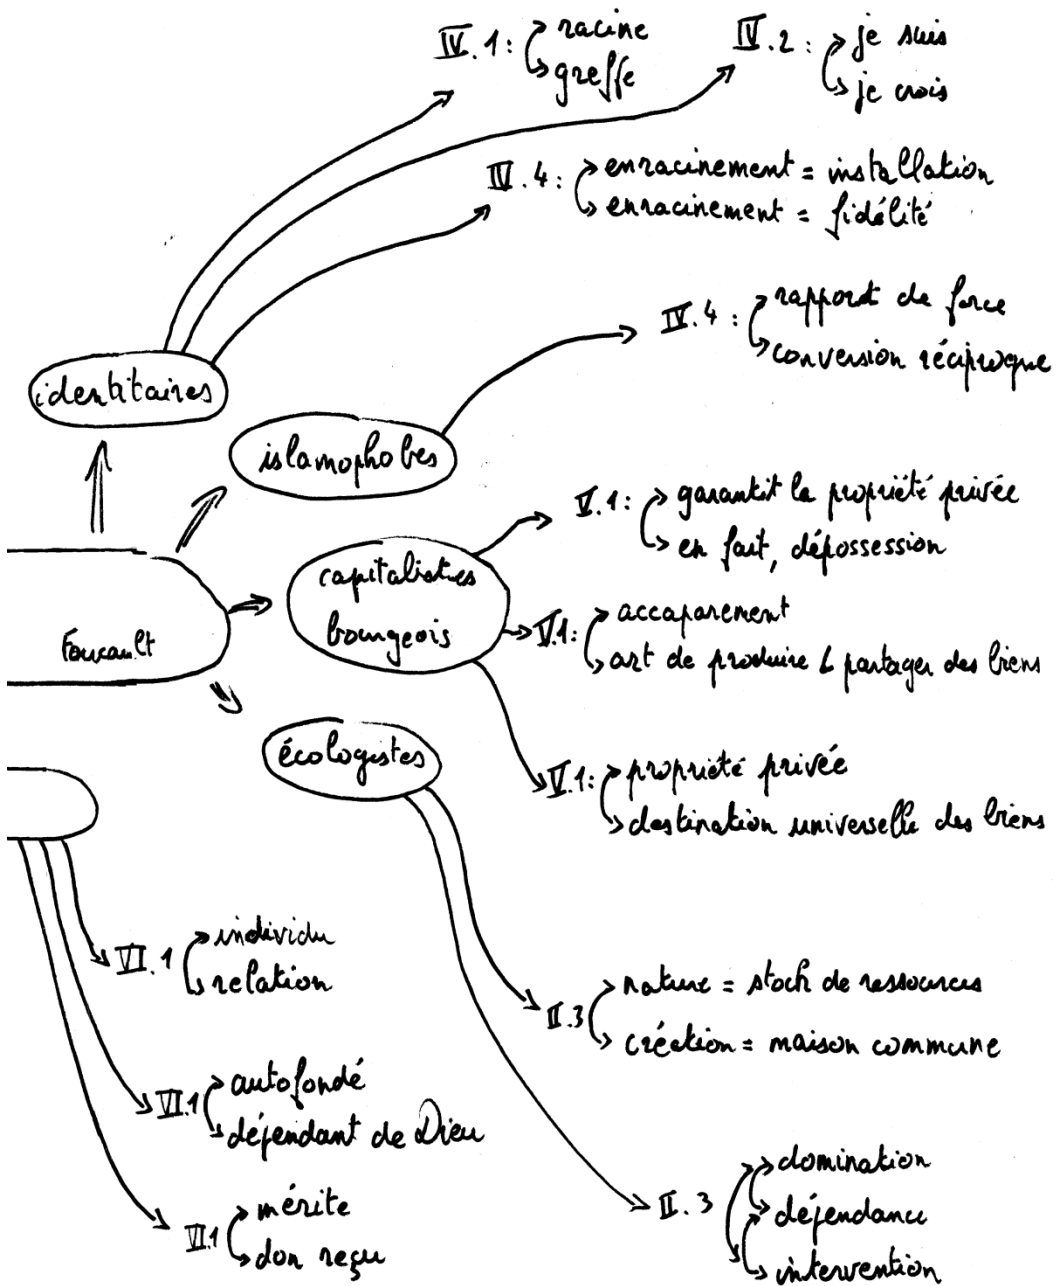 IV.1: racine
greffe
IV.2: je suis
je crois
IV.4: enracinement = installation
enracinement = fidélité
identitaires
IV.4: rapport de force
conversion réciproque
islamophobes
V.1: garantit la propriété privée
en fait, dépossession
capitalistes
bourgeois
Foucault
V.1: accaparement
art de produire & partager des biens
écologistes
V.1: propriété privée
destination universelle des biens
VI.1 individu
relation
II.3 nature = stock de ressources
création = maison commune
VI.1 autofondé
dépendant de Dieu
VI.1 mérite
don reçu
II.3 domination
dépendance
intervention